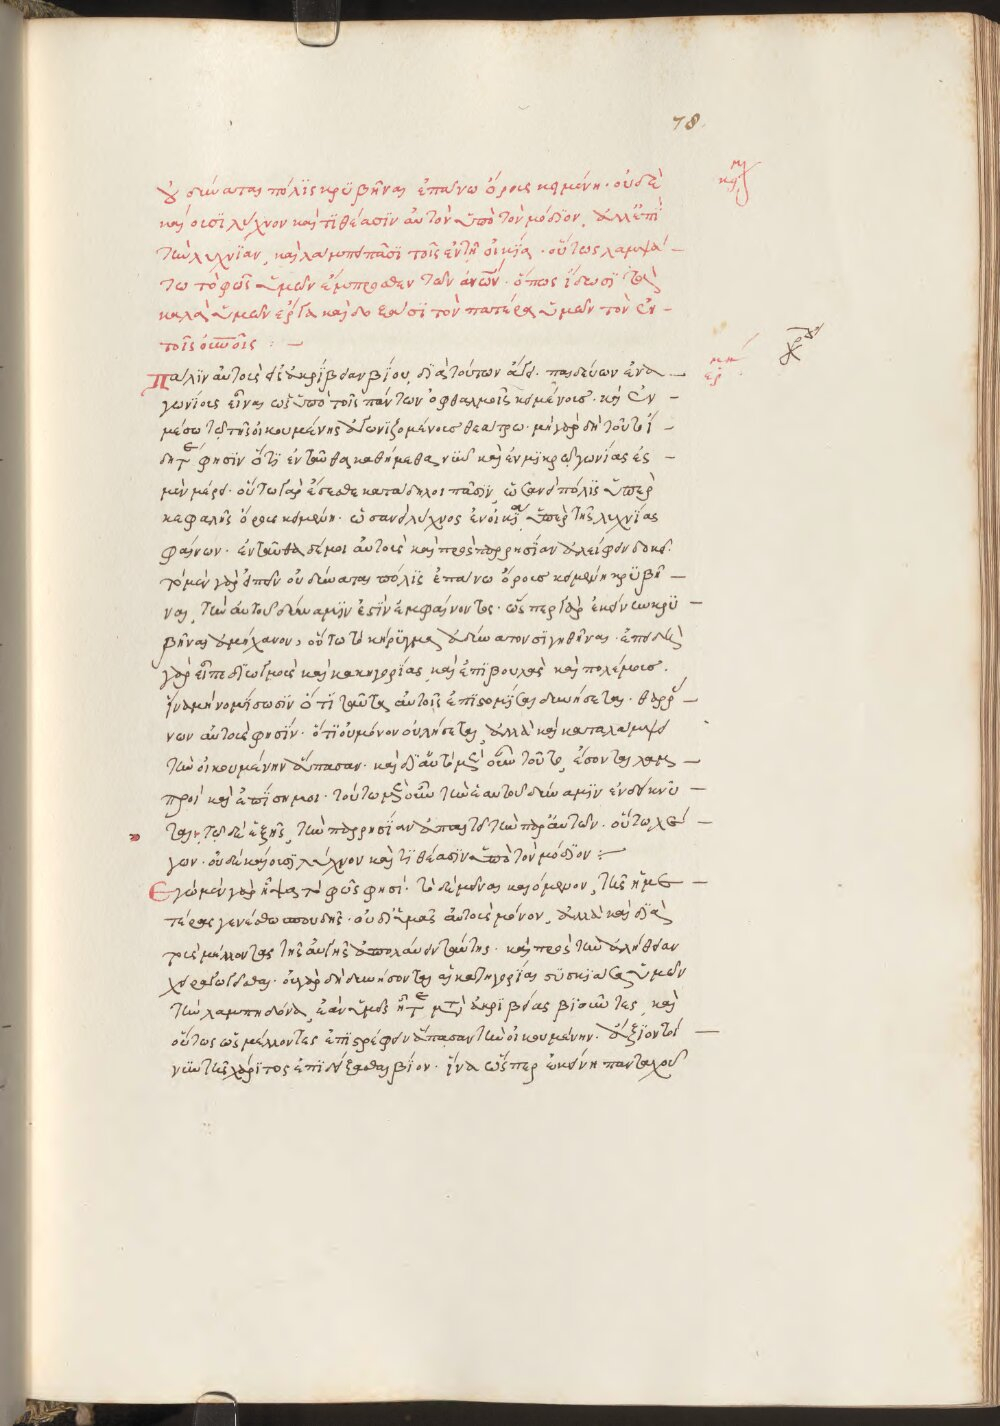 78
Οὐ δύναται πόλις κρυβῆναι ἐπάνω ὄρους κειμένη· οὐδὲ
καίουσι λύχνον καὶ τιθέασιν αὐτὸν ὑπὸ τὸν μόδιον, ἀλλ' ἐπὶ
τὴν λυχνίαν, καὶ λάμπει πᾶσι τοῖς ἐν τῇ οἰκίᾳ· οὕτως λαμψά
τω τὸ φῶς ὑμῶν ἔμπροσθεν τῶν ἀνων· ὅπως ἴδωσι τὰ
καλὰ ὑμῶν ἔργα καὶ δοξάσι τὸν πατέρα ὑμῶν τὸν ἐν
τοῖς οὐνοῖς :
Πάλιν αὐτοὺς εἰς ἀκρίβειαν βίου, διὰ τούτων ἄγει· παιδεύων ἐνα
γωνίους εἶναι ὡς ὑπὸ τοῖς πάντων ὀφθαλμοῖς κειμένοις· καὶ ἐν
μέσω τῷ τῆς οἰκουμένης ἀγωνιζομένοις θεάτρω· μὴ γὰρ δὴ τοῦτο ἴ
δητε φησὶν ὅτι ἐνταῦθα καθήμεθα νῦν καὶ ἐν μικρᾷ γωνίας ἐς
μὲν μέρει· οὕτω γὰρ ἔσεσθε κατάδηλοι πᾶσιν, ὡσανεὶ πόλις ὑπὲρ
κεφαλῆς ὄρους κειμένη· ὡσανεὶ λύχνος ἐν οἰκία ὑπὲρ τῆς λυχνίας
φαίνων· ἐνταῦθα δέ μοι αὐτοὺς καὶ πρὸς παρρησίαν ἀλείφειν δοκεῖ·
τὸ μὲν γὰρ εἰπεῖν οὐ δύναται πόλις ἐπάνω ὄρους κειμένη κρυβῆ
ναι, τὴν αὐτοῦ δύναμιν ἐστὶν ἐμφαίνοντος· ὥσπερ γὰρ ἐκείνην κρυ
βῆναι ἀμήχανον, οὕτω τὸ κήρυγμα ἀδύνατον σιγηθῆναι· ἐπειδὴ
γὰρ εἶπε διωγμοὺς καὶ κακηγορίας, καὶ ἐπιβουλὰς καὶ πολέμους·
ἵνα μὴ νομίσωσιν ὅτι ταῦτα αὐτοὺς ἐπιστομίσαι δυνήσεται· θαρρύ
νων αὐτοὺς φησίν· ὅτι οὐ μόνον οὐ λήσεται, ἀλλὰ καὶ καταλάμψει
τὴν οἰκουμένην ἅπασαν· καὶ δι' αὐτὸ μὲν οὖν τοῦτο, ἔσονται λαμ
προὶ καὶ ἐπίσημοι· τούτω μὲν οὖν τὴν ἑαυτοῦ δύναμιν ἐνδείκνυ
ται, τῷ δὲ ἑξῆς, τὴν παρρησίαν ἀπαιτεῖ τὴν παρ' αὐτῶν· οὕτω λέ
γων· οὐδὲ καίουσι λύχνον καὶ τιθέασιν ὑπὸ τὸν μόδιον :
Ἐγὼ μὲν γὰρ ἧψα τὸ φῶς φησί· τὸ δὲ μεῖναι καιόμενον, τῆς ἡμε
τέρας γενέσθω σπουδῆς· οὐ δι' ὑμᾶς αὐτοὺς μόνον, ἀλλὰ καὶ διὰ
τοὺς μέλλοντας τῆς αὐγῆς ἀπολαύειν ταύτης· καὶ πρὸς τὴν ἀλήθειαν
χειραγωγεῖσθαι· οὐ γὰρ δὴ δυνήσονται αἱ κατηγορίαι συσκιάσαι ὑμῶν
τὴν λαμπηδόνα, ἐὰν ὑμεῖς ἦτε μετὰ ἀκριβείας βιοῦντες, καὶ
οὕτως ὡς μέλλοντες ἐπιστρέφειν ἅπασαν τὴν οἰκουμένην· ἄξιον τοί
νυν τῆς χάριτος ἐπιδείξασθαι βίον· ἵνα ὥσπερ ἐκείνη πανταχοῦ